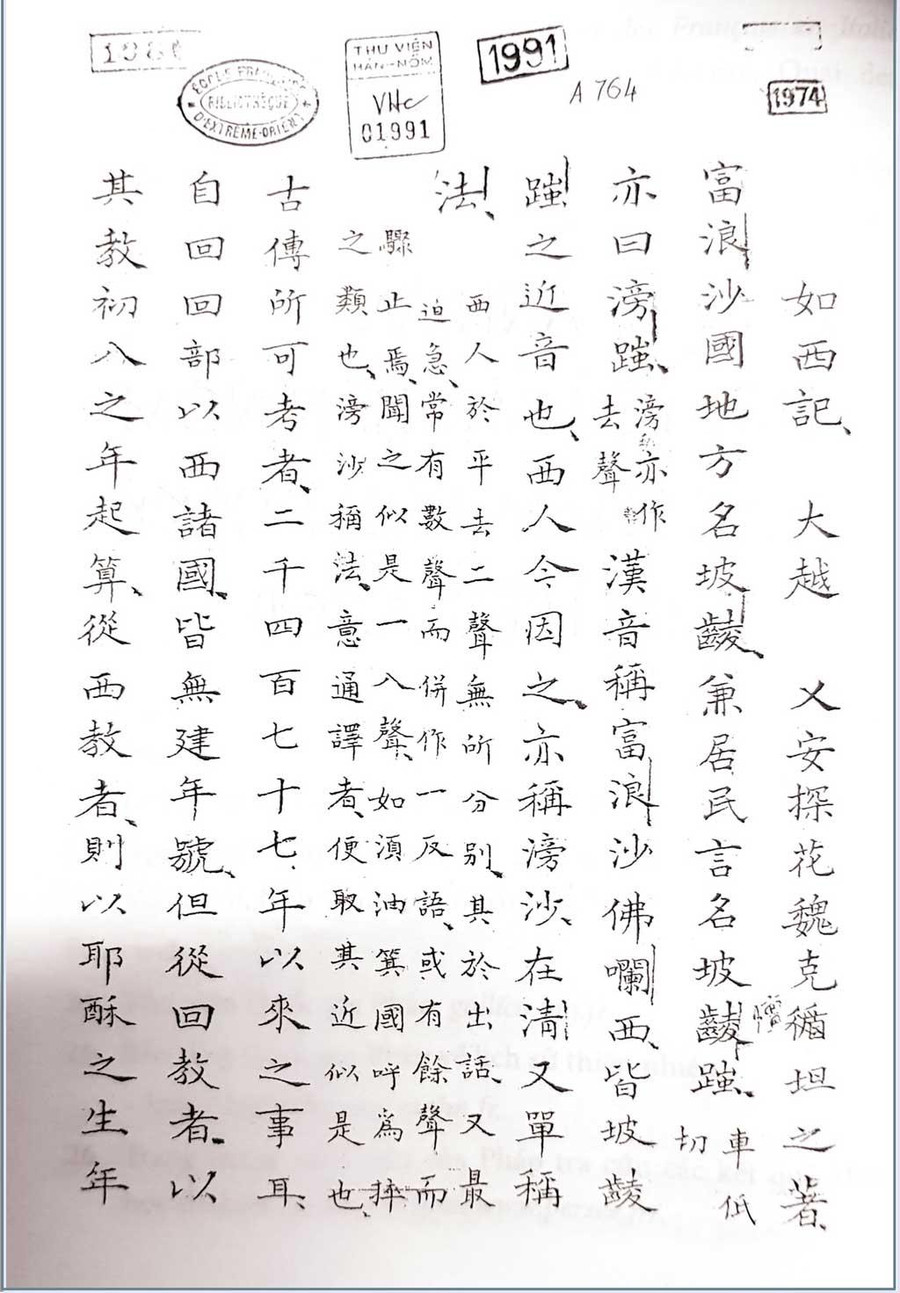 ÉCOLE FRANÇAISE D'EXTRÊME-ORIENT
BIBLIOTHÈQUE
THƯ VIỆN
HÁN-NÔM
VHc
01991
1991
A 764
1974
如西記、 大越 乂安探花魏克循坦之著
富浪沙國地方名坡、兼居民言名坡 車低切
亦曰滂、滂亦作去聲漢音稱富浪沙佛㘓西、皆坡
之近音也、西人今因之、亦稱滂沙、在清又單稱
法、
西人於平去二聲無所分別、其於出話、又最
迫急、常有數聲而併作一反語、或有餘聲而
驟止焉、聞之似是一入聲、如湏油箕國呼爲捽
之類也、滂沙稱法、意通譯者、便取其近似是也、
古傳所可考者、二千四百七十七年以來之事耳
自回回部以西諸國、皆無建年號、但從回教者、以
其教初入之年起算、從西教者、則以耶酥之生年